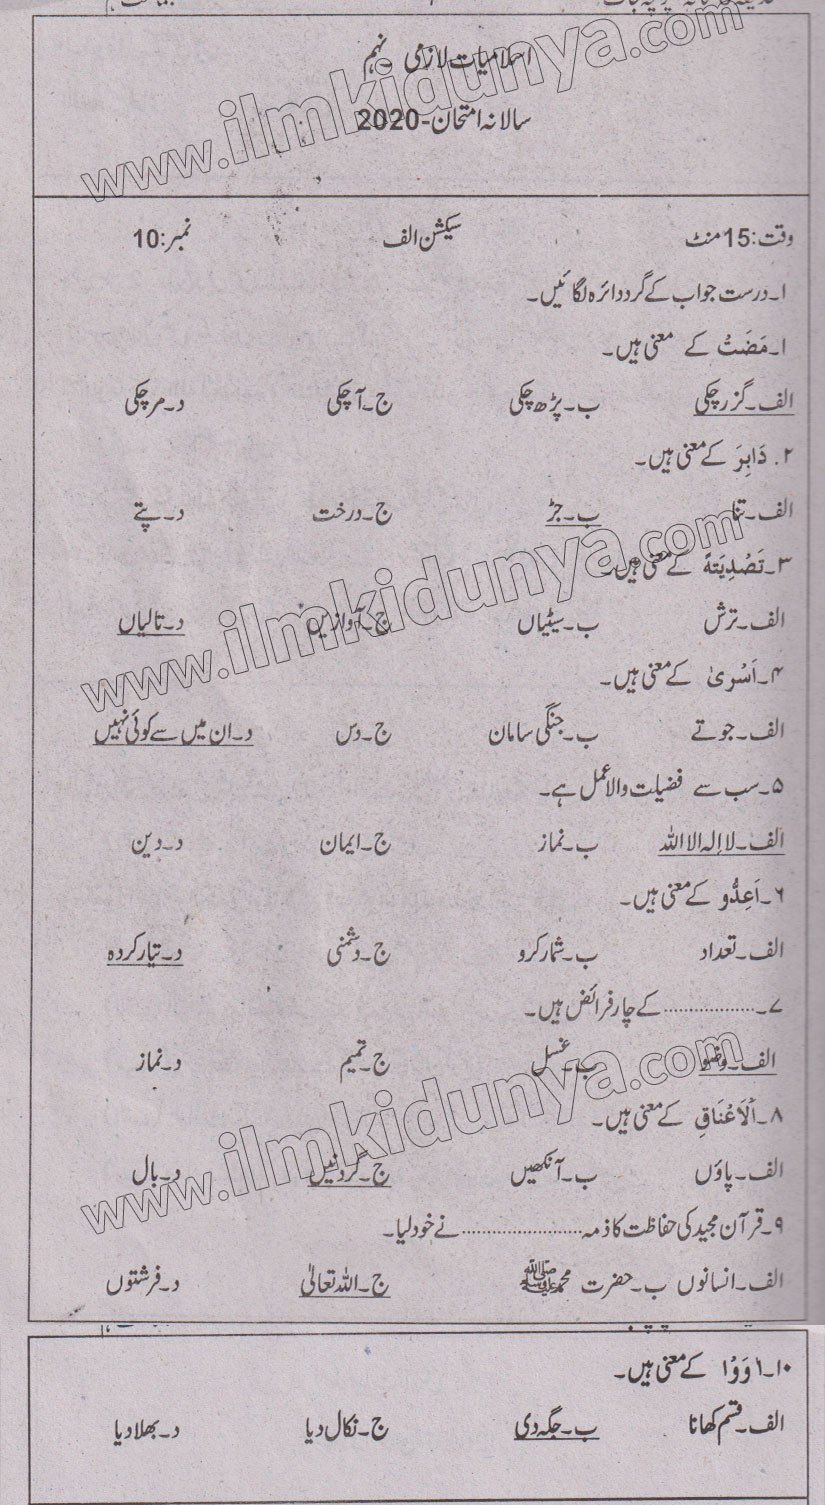 اسلامیات لازمی - نہم
سالانہ امتحان-2020
وقت: 15 منٹ سیکشن الف نمبر: 10
۱۔ درست جواب کے گرد دائرہ لگائیں۔
۱۔ مَضَتْ کے معنی ہیں۔
الف۔ گزر چکی ب۔ پڑھ چکی ج۔ آ چکی د۔ مر چکی
۲. دَابِرَ کے معنی ہیں۔
الف۔ تنا ب۔ جڑ ج۔ درخت د۔ پتے
۳۔ تَصْدِيَتهً کے معنی ہیں۔
الف۔ ترش ب۔ سیٹیاں ج۔ آوازیں د۔ تالیاں
۴۔ اَسْریٰ کے معنی ہیں۔
الف۔ جوتے ب۔ جنگی سامان ج۔ دس د۔ ان میں سے کوئی نہیں
۵۔ سب سے فضیلت والا عمل ہے۔
الف۔ لا الہ الا اللہ ب۔ نماز ج۔ ایمان د۔ دین
۶۔ اَعِدُّو کے معنی ہیں۔
الف۔ تعداد ب۔ شمار کرو ج۔ دشمنی د۔ تیار کردہ
۷۔ ................ کے چار فرائض ہیں۔
الف۔ وضو ب۔ غسل ج۔ تمیم د۔ نماز
۸۔ اَلْاَعْنَاقِ کے معنی ہیں۔
الف۔ پاؤں ب۔ آنکھیں ج۔ گردنیں د۔ بال
۹۔ قرآن مجید کی حفاظت کا ذمہ ..................... نے خود لیا۔
الف۔ انسانوں ب۔ حضرت محمد ﷺ ج۔ اللہ تعالیٰ د۔ فرشتوں
۱۰۔ ا وَوْا کے معنی ہیں۔
الف۔ قسم کھانا ب۔ جگہ دی ج۔ نکال دیا د۔ بھلا دیا
www.ilmkidunya.com
www.ilmkidunya.com
www.ilmkidunya.com